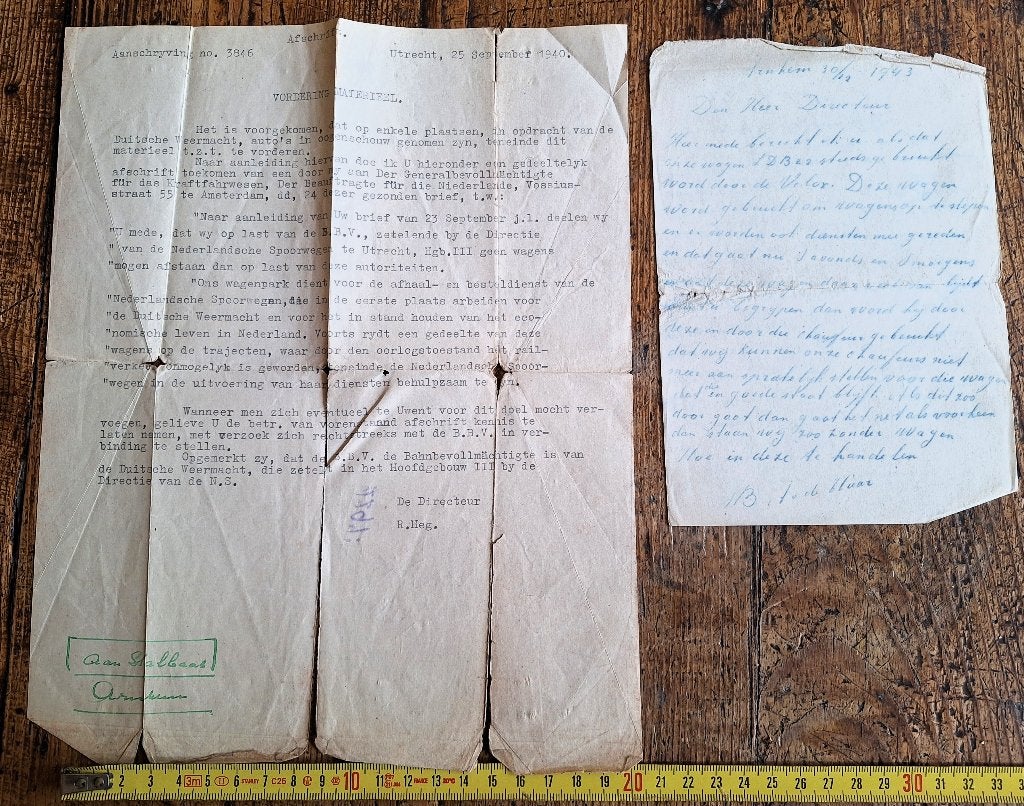 Afschrift.
Aanschryving no. 3846
Utrecht, 25 September 1940.
VORDERING MATERIEEL.
Het is voorgekomen, dat op enkele plaatsen, in opdracht van de
Duitsche Weermacht, auto's in oogenschouw genomen zyn, teneinde dit
materieel t.z.t. te vorderen.
Naar aanleiding hiervan doe ik U hieronder een gedeeltelyk
afschrift toekomen van een door my van Der Generalbevollmächtigte
für das Kraftfahrwesen, Der Beauftragte für die Niederlande, Vossius-
straat 55 te Amsterdam, dd, 24 dezer gezonden brief, t.w.:
"Naar aanleiding van Uw brief van 23 September j.l. deelen wy
"U mede, dat wy op last van de B.B.V., zetelende by de Directie
" van de Nederlandsche Spoorwegen te Utrecht, Hgb.III geen wagens
"mogen afstaan dan op last van deze autoriteiten.
"Ons wagenpark dient voor de afhaal- en besteldienst van de
"Nederlandsche Spoorwegen, die in de eerste plaats arbeiden voor
"de Duitsche Weermacht en voor het in stand houden van het eco-
"nomische leven in Nederland. Voorts rydt een gedeelte van deze
"wagens op de trajecten, waar door den oorlogstoestand het rail-
"verkeer onmogelyk is geworden, teneinde de Nederlandsche Spoor-
"wegen in de uitvoering van haar diensten behulpzaam te zyn.
Wanneer men zich eventueel te Uwent voor dit doel mocht ver-
voegen, gelieve U de betr. van vorenstaand afschrift kennis te
laten nemen, met verzoek zich rechtstreeks met de B.B.V. in ver-
binding te stellen.
Opgemerkt zy, dat de B.B.V. de Bahnbevollmächtigte is van
de Duitsche Weermacht, die zetelt in het Hoofdgebouw III by de
Directie van de N.S.
De Directeur
R.Heg.
Aan Stalbaas
Arnhem
Arnhem 30/12 1943
Den Heer Directeur
Hier mede bericht ik u als dat
onze wagen steeds gebruikt
word door de Velox. Deze wagen
word gebruikt om wagens op te slepen
en er worden ook diensten mee gereden
en dat gaat nu s avonds en s morgens
begrijpen dan word hij door
deze en door die chaufeur gebruikt
dat wij kunnen onze chaufeurs niet
meer aansprakelijk stellen voor die wagen
dat die in goede staat blyft. Als dat zoo
door gaat dan gaat het net als voorheen
dan staan wij zoo zonder wagen
Hoe in deze te handelen
1 2 3 4 5 6 7 8 9 10 11 12 13 14 15 16 17 18 19 20 21 22 23 24 25 26 27 28 29 30 31 32 33
3m STANLEY C25